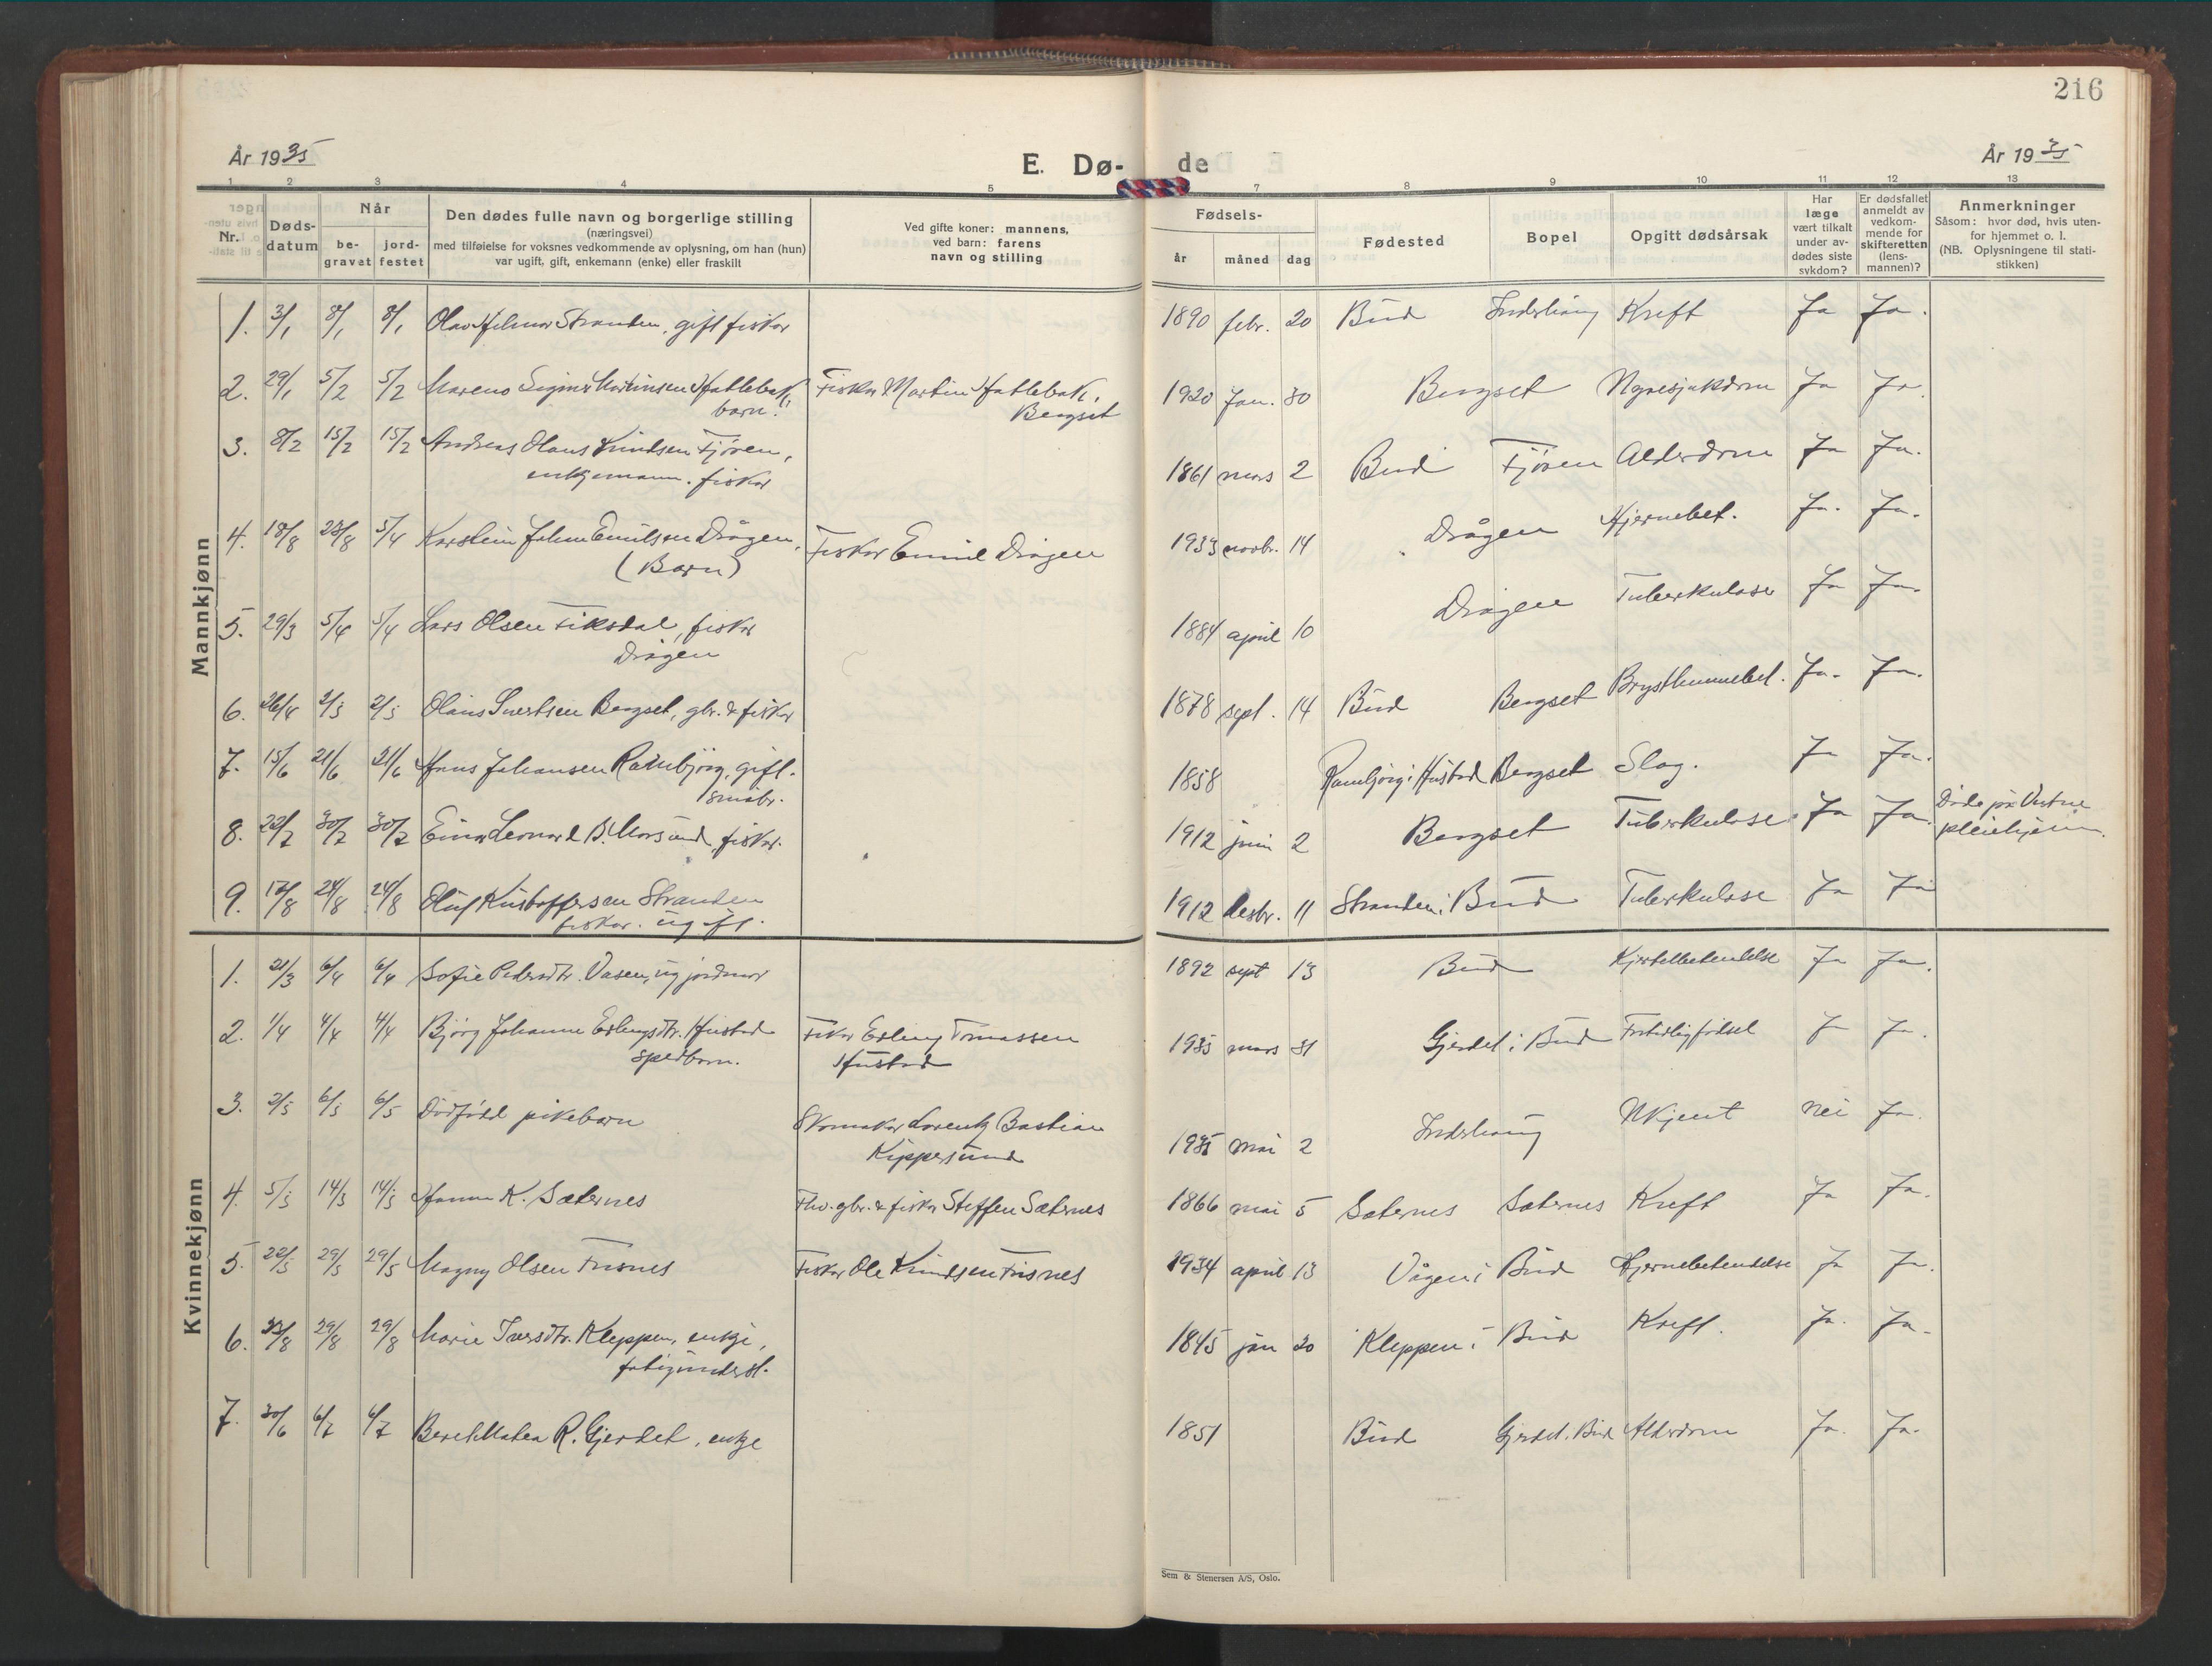 216
År 1935
E. Dø- de
År 1935
1 2 3 4 5 7 8 9 10 11 12 13
Nr.
Døds-
datum
Når
be-
gravet
jord-
festet
Den dødes fulle navn og borgerlige stilling
(næringsvei)
med tilføielse for voksnes vedkommende av oplysning, om han (hun)
var ugift, gift, enkemann (enke) eller fraskilt
Ved gifte koner: mannens,
ved barn: farens
navn og stilling
Fødsels-
år måned dag
Fødested
Bopel
Opgitt dødsårsak
Har
læge
vært tilkalt
under av-
dødes siste
sykdom?
Er dødsfallet
anmeldt av
vedkom-
mende for
skifteretten
(lens-
mannen)?
Anmerkninger
Såsom: hvor død, hvis uten-
for hjemmet o. l.
(NB. Oplysningene til stati-
stikken)
Mannkjønn
1. 3/1 8/1 8/1 Olav Hilmar Stranden, gift fisker 1890 febr. 20 Bud Inderhaug Kreft Ja Ja.
2. 29/1 5/2 5/2 Mareno Sigmar Martinsen Hatlebak, Fisker Martin Hatlebak, 1920 Jan. 30 Bergset Nyresykdom Ja Ja.
barn. Bergset
3. 8/2 15/2 15/2 Andreas Olaus Knudsen Tjøren, 1861 mars 2 Bud Tjøren Alderdom Ja Ja.
enkjemann. fisker
4. 18/8 23/8 5/4 Karstein Johan Emilsen Drågen, Fisker Emil Drågen 1933 novbr. 14 Drågen Hjernebet. Ja. Ja.
(Barn)
5. 29/3 5/4 5/4 Lars Olsen Fiksdal, fisker 1884 april 10 Drågen Tuberkulose Ja Ja.
Drågen
6. 26/4 2/5 2/5 Olaus Sivertsen Bergset, gbr. & fisker 1878 sept. 14 Bud Bergset Brysthinnebet. Ja. Ja.
7. 15/6 21/6 21/6 Hans Johansen Rambjørg, gift. 1858 Rambjørg i Hustad Bergset Slag. Ja Ja.
småbr.
8. 22/7 30/7 30/7 Einar Leonard B. Morsund, fisker. 1912 juni 2 Bergset Tuberkulose Ja Ja Døde på Vestnes
pleiehjem.
9. 17/8 24/8 24/8 Oluf Kristoffersen Stranden 1912 desbr. 11 Stranden i Bud Tuberkulose Ja Ja
fisker. ugift.
Kvinnekjønn
1. 21/3 6/4 6/4 Sofie Pedersdtr. Vasen, ug jordmor 1892 sept 13 Bud Kjertelbetendelse Ja Ja.
2. 1/4 4/4 4/4 Bjørg Johanne Erlingsdtr. Hustad Fisker Erling Tomassen 1935 mars 31 Gjerdet i Bud Fortidlig fødsel Ja Ja.
spedbarn. Hustad
3. 2/5 6/5 6/5 Dødfødd pikebarn Skomaker Lorentz Bastian 1935 mai 2 Inderhaug Ukjent nei Ja.
Kippersund
4. 5/5 14/5 14/5 Hanna K. Sæternes Fhv. gbr. & fisker Steffen Sæternes 1866 mai 5 Sæternes Sæternes Kreft Ja Ja.
5. 22/5 29/5 29/5 Magny Olsen Trisnes Fisker Ole Knudsen Trisnes 1934 april 13 Vågen i Bud Hjernebetendelse Ja Ja.
6. 23/8 29/8 29/8 Marie Iversdtr. Kleppen, enkje, 1845 jan 20 Kleppen i Bud Kreft. Ja. Ja.
fatigunderst.
7. 30/6 6/7 6/7 Beret Matea R. Gjerdet, enkje 1851 Bud Gjerdet. Bud Alderdom Ja. Ja.
Sem & Stenersen A/S, Oslo.